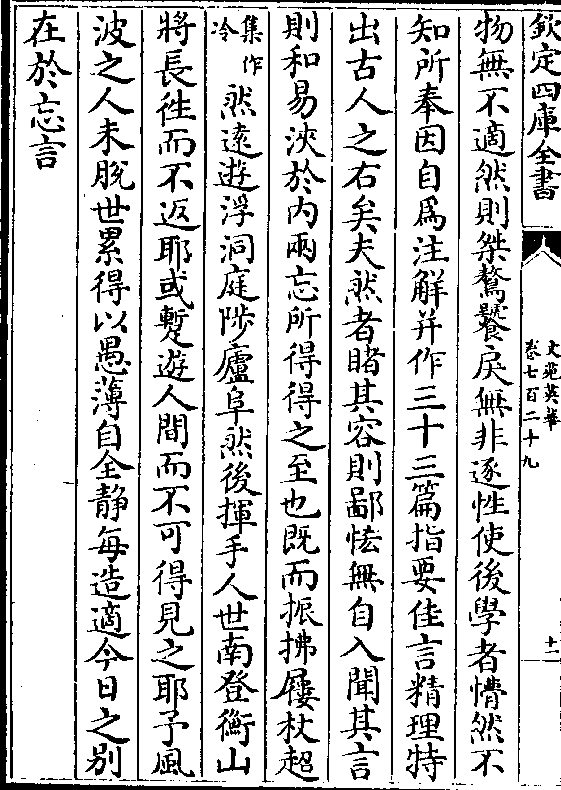 欽定四庫全書
文苑英華
卷七百二十九
十二
物無不適然則桀驁饕戾無非逐性使後學者懵然不
知所奉因自為注解并作三十三篇指要佳言精理特
出古人之右矣夫然者睹其容則鄙怯無自入聞其言
則和易浹於内兩忘所得得之至也既而振拂屨杖超
集作冷
然遠遊浮洞庭陟廬阜然後揮手人世南登衡山
將長往而不返耶或蹔遊人間而不可得見之耶予風
波之人未脫世累得以愚薄自全静每造適今日之别
在於忘言